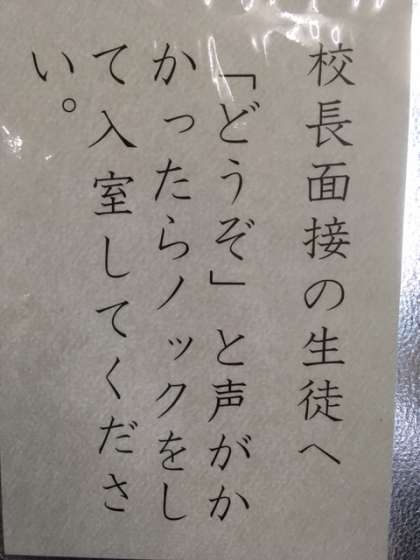 校長面接の生徒へ
「どうぞ」と声がか
かったらノックをし
て入室してくださ
い。